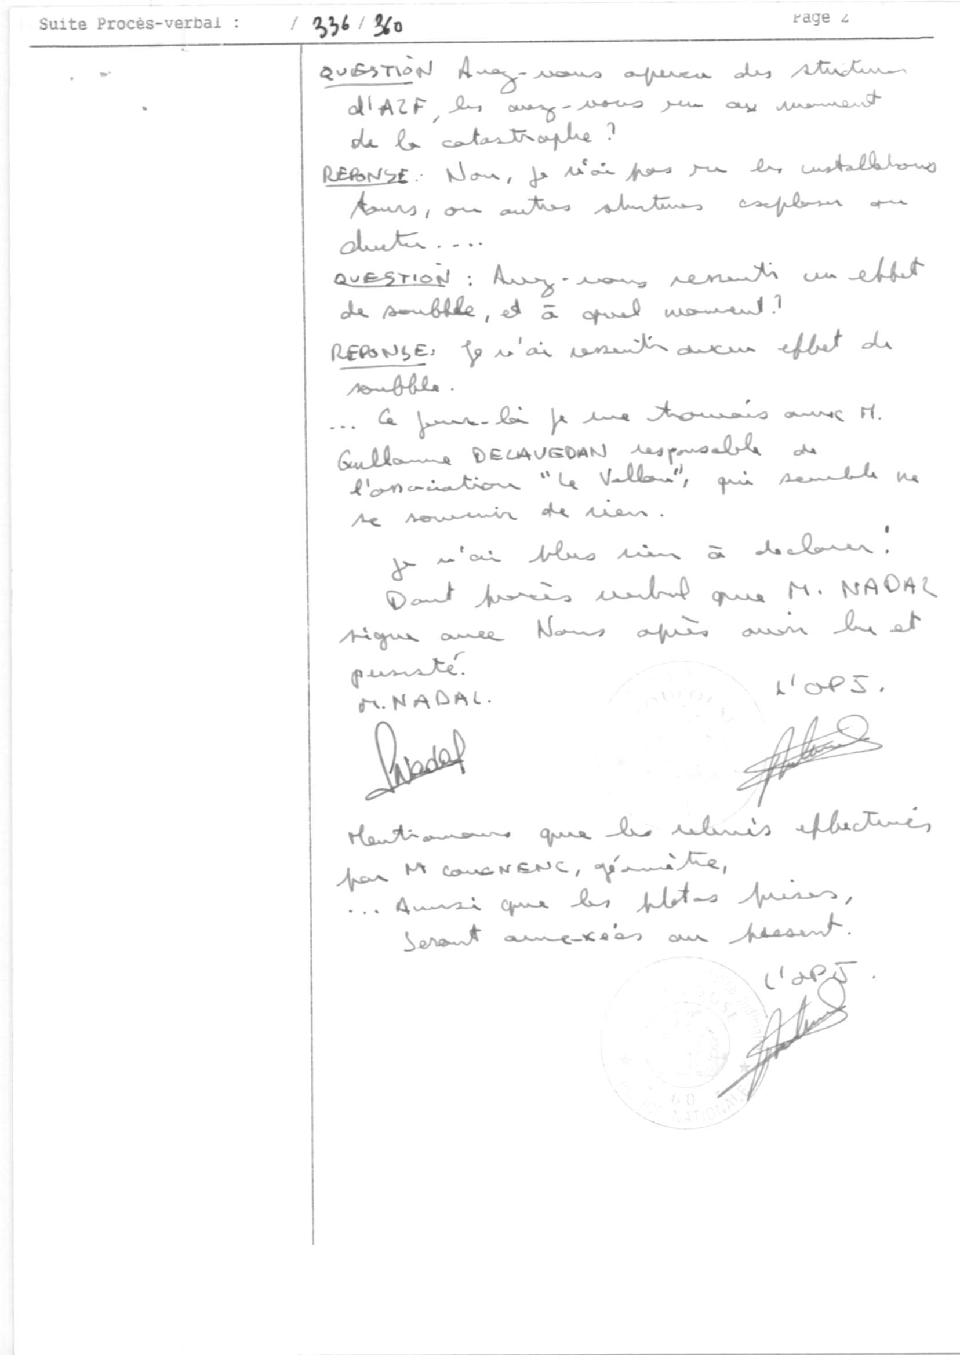 Suite Procès-verbal : / 336 / 360 Page 2
QUESTION Avez-vous aperçu des structures
d'AZF, les avez-vous vu au moment
de la catastrophe ?
REPONSE. Non, je n'ai pas vu les installations
tours, ou autres structures exploser ou
....
QUESTION : Avez-vous ressenti un effet
de souffle, et à quel moment ?
REPONSE. Je n'ai ressenti aucun effet de
souffle.
... Ce jour-là je me trouvais avec M.
Guillaume DELAVEDAN responsable de
l'association "Le Vallon", qui semble ne
se souvenir de rien.
Je n'ai plus rien à declarer !
Dont procès verbal que M. NADAL
signe avec Nous après avoir lu et
persisté.
M. NADAL. L'OPJ.
Nadal
Mentionnons que les relevés effectués
par M COUGNENC, géomètre,
... Ainsi que les photos prises,
Seront annexées au present.
L'OPJ.
NATIONALE